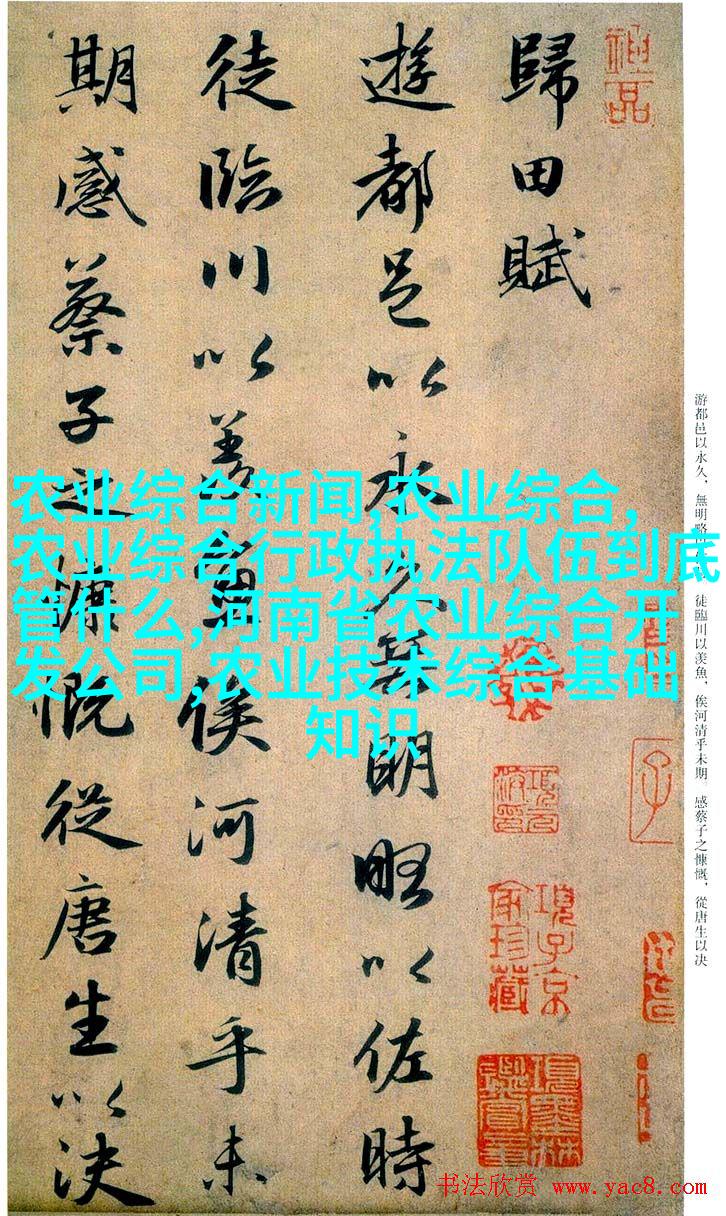 歸田賦
遊都邑以永久無明略以佐時
徒臨川以羡魚俟河清乎未
期感蔡子之慷慨從唐生以决
农业综合新闻,农业综合,
农业综合行政执法队伍到底
管什么,河南省农业综合开
发公司,农业技术综合基础
知识
游都邑以永久，無明略 徒臨川以羡魚，俟河清乎未期。感蔡子之慷慨，從唐生以决
神品
項子京家珍藏
項墨林鑑賞章
书法欣赏 www.yac8.com